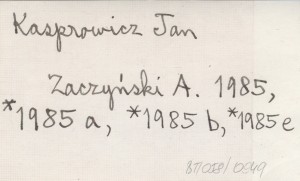 Kasprowicz Jan
Zaczyński A. 1985,
*1985 a, *1985 b, *1985 e